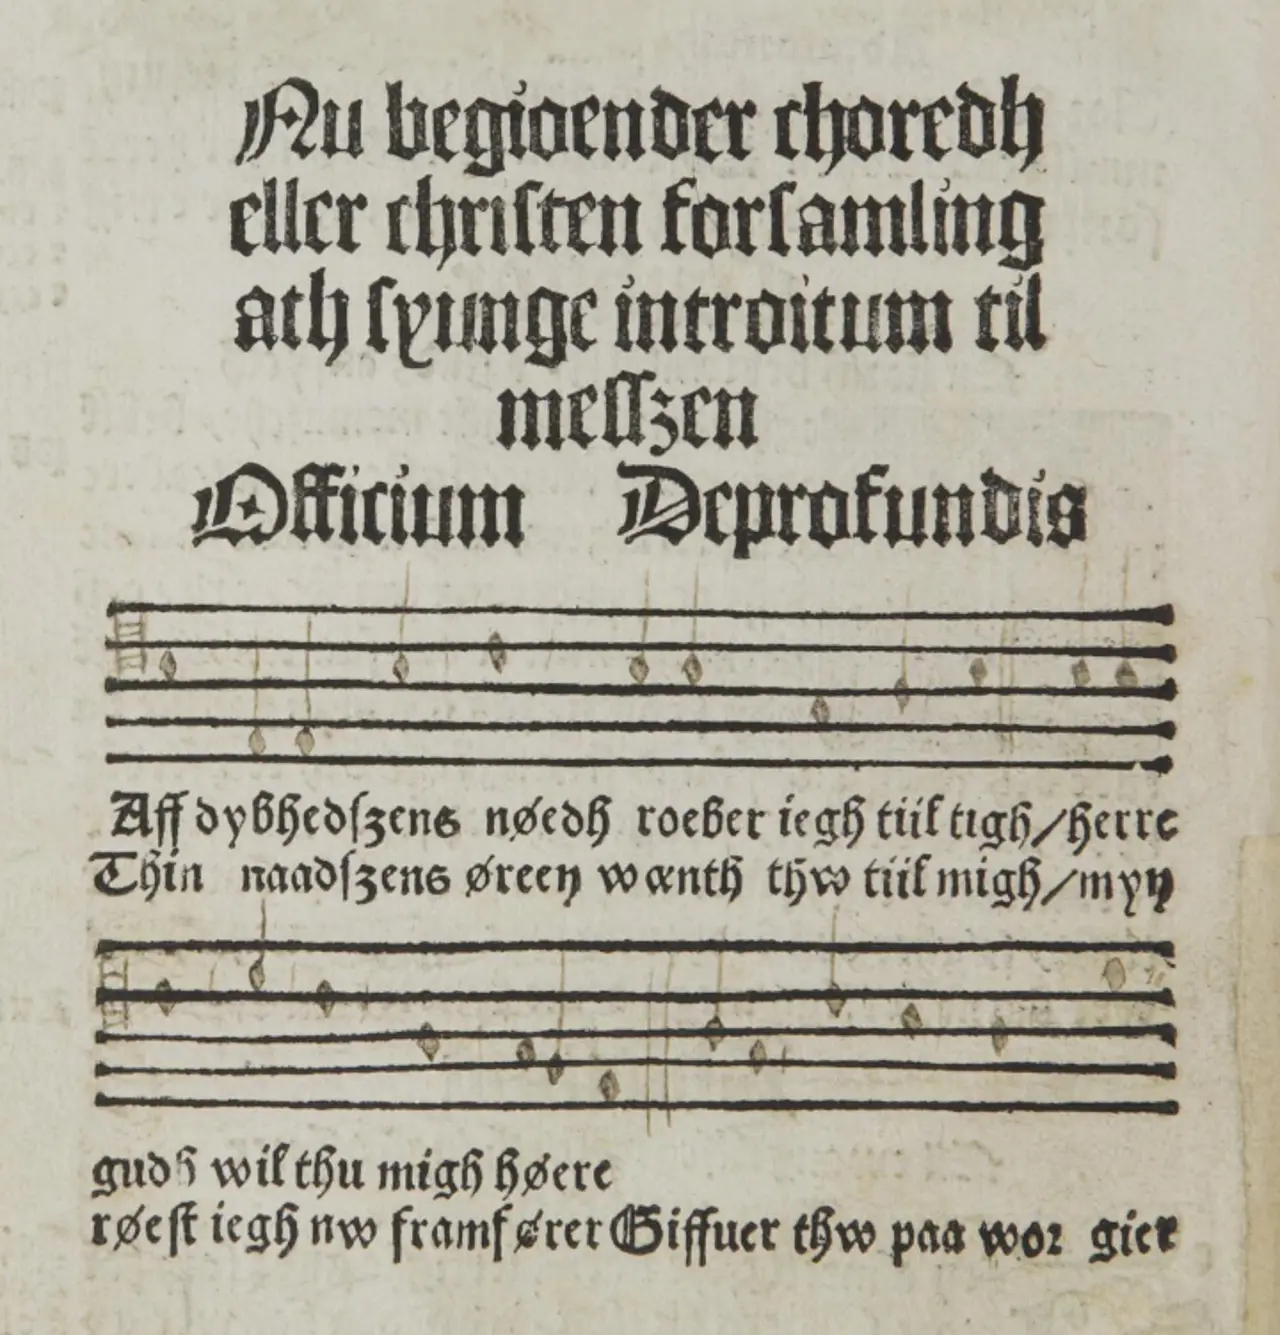 Nu begiøender choredh
eller christen forsamling
ath syunge introitum til
messzen
Officium Deprofundis
Aff dybhedszens nøedh roeber iegh tiil tigh/herre
Thin naadszens øreen wænth thw tiil migh/myn
gudh wil thu migh høere
røest iegh nw framfører Giffuer thw paa wor gier